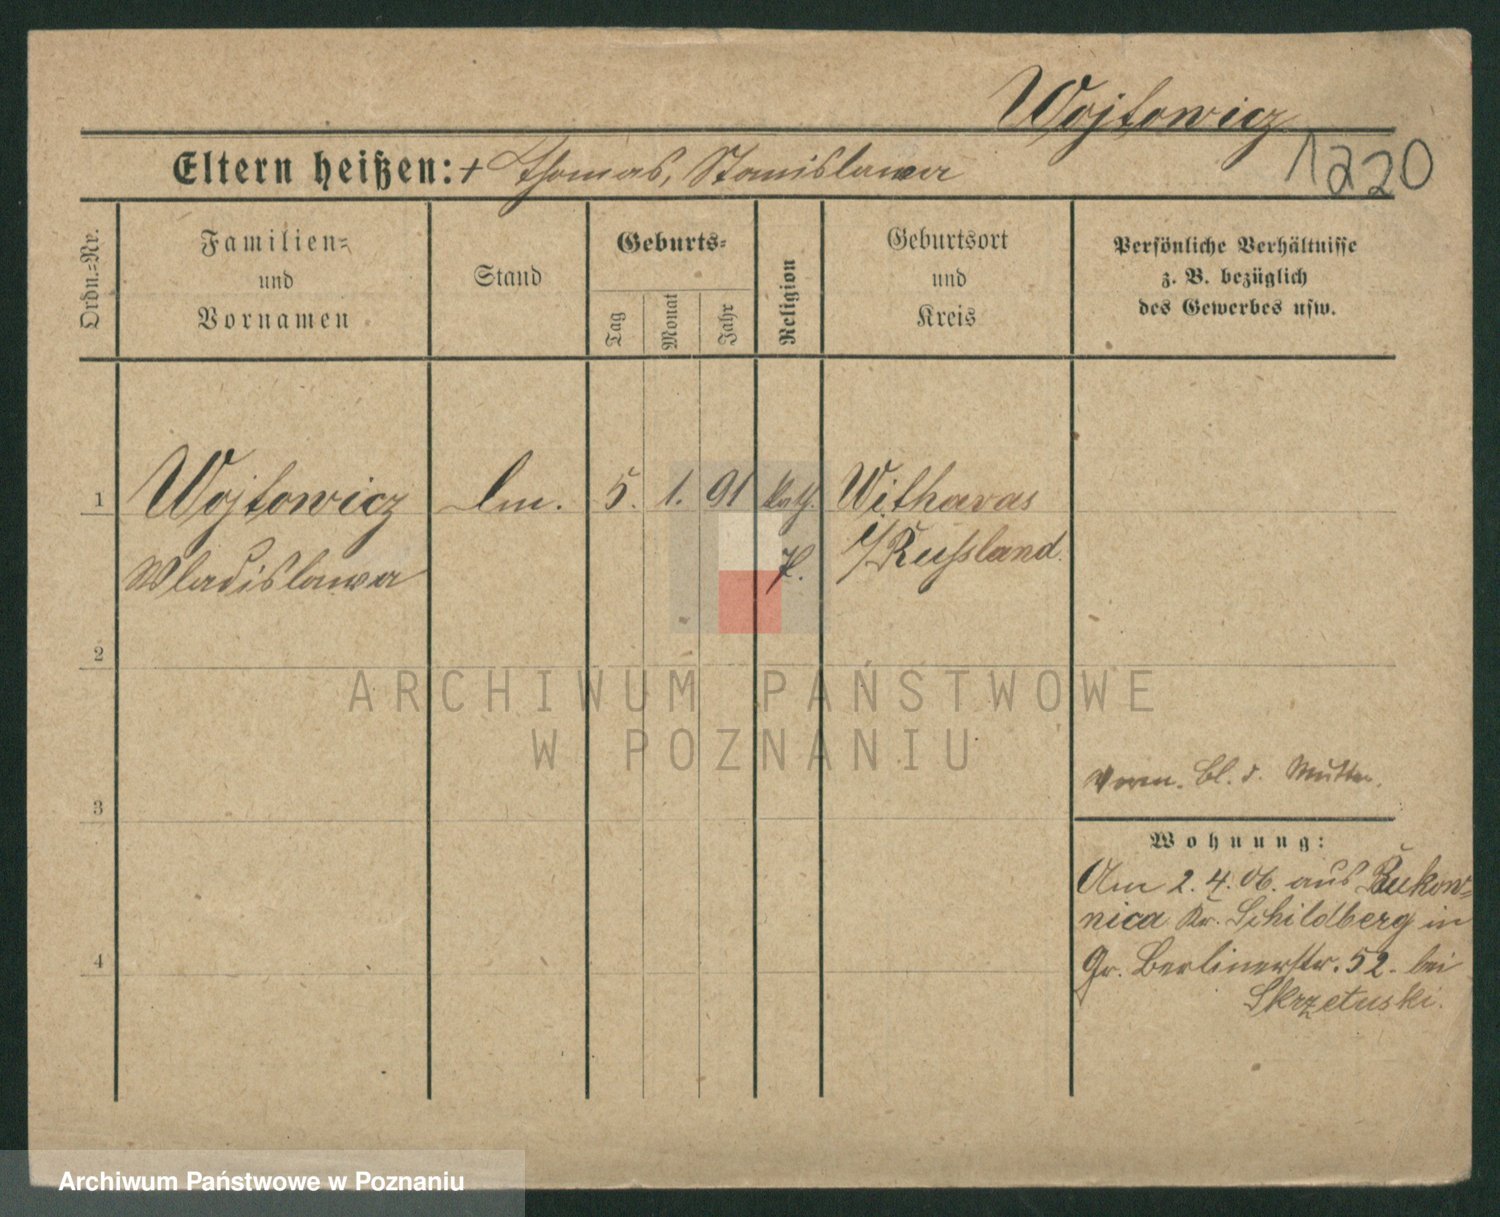 Wojtowicz
1220
Eltern heißen: + Thomas, Stanislawa
Ordn.=Nr.
Familien=
und
Vornamen
Stand
Geburts=
Tag
Monat
Jahr
Religion
Geburtsort
und
Kreis
Persönliche Verhältnisse
z. B. bezüglich
des Gewerbes usw.
1 Wojtowicz 5. 1. 91 kath. Witharas
Wladislawa i/Russland.
2
3
4
Verm. Bl. d. Mutter.
Wohnung:
Am 2. 4. 06. aus Bukow=
nica Kr. Schildberg in
Gr. Berlinerstr. 52. bei
Skrzetuski.
ARCHIWUM PAŃSTWOWE
W POZNANIU
Archiwum Państwowe w Poznaniu